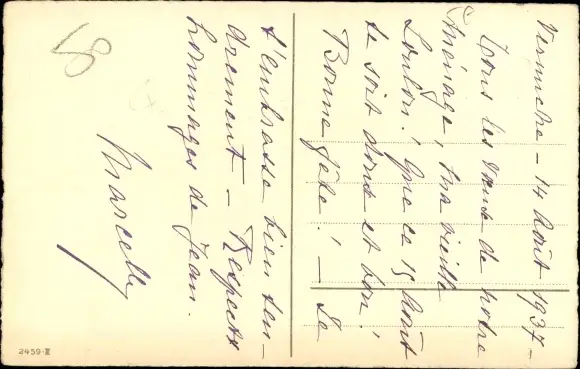 Vérinche - 14 Août 1937 -
Tous les vœux de notre
ménage, ma vieille
Loulou ! Que ce 15 Août
te soit doux et bon !
Bonne fête ! - Je
t'embrasse bien ten-
drement - Respects
hommages de Jean.
Marcelle
2459-II